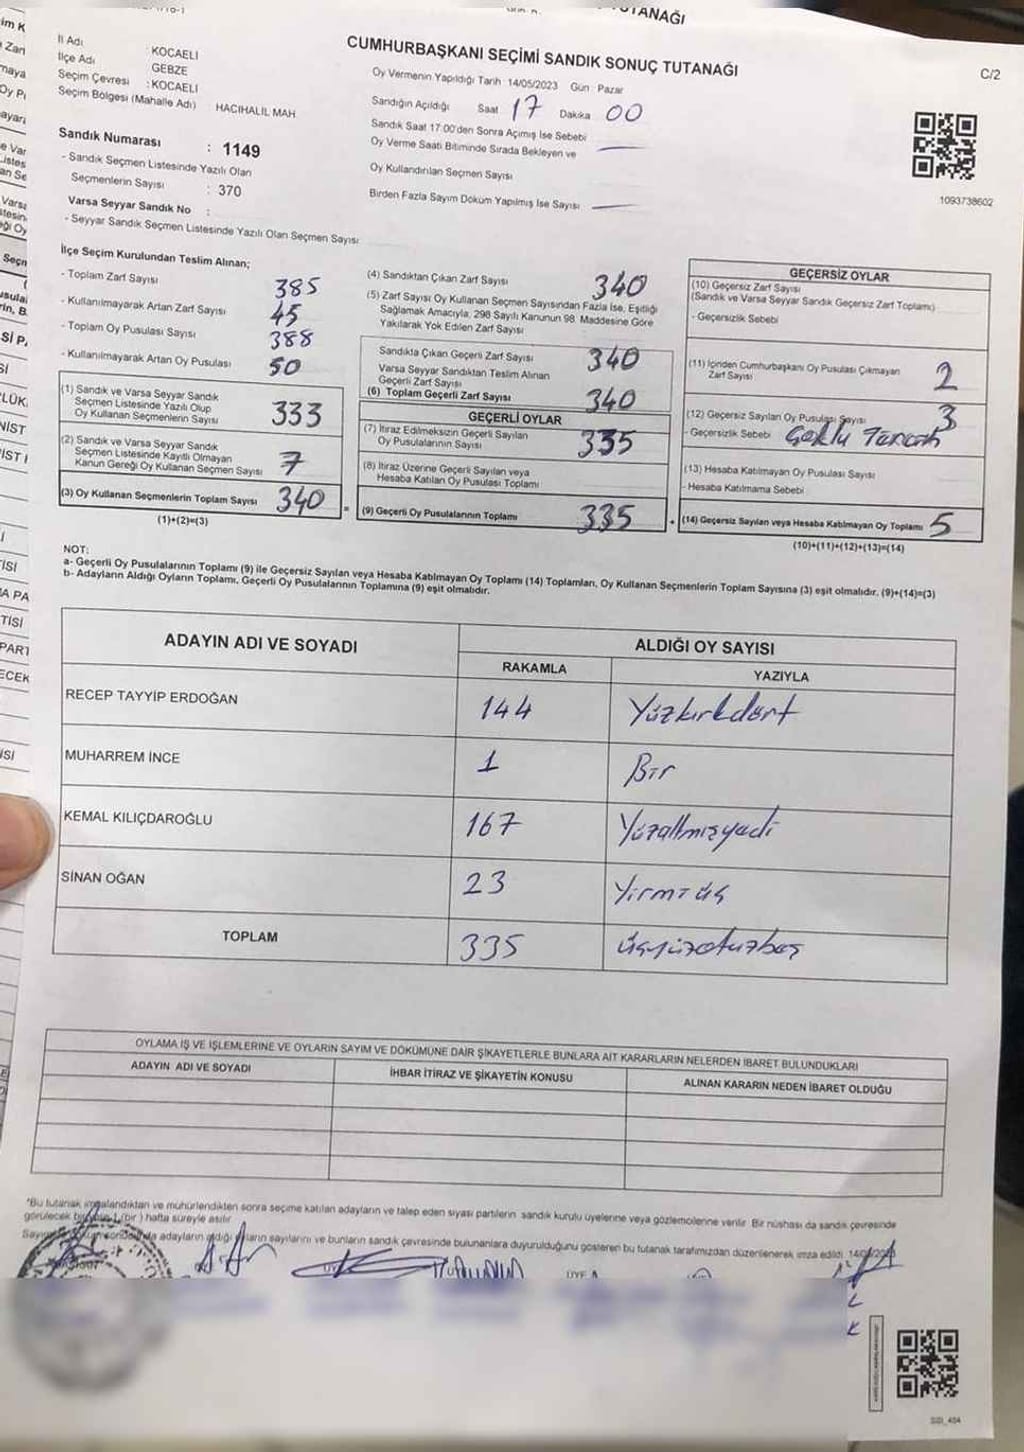 TUTANAĞI
C/2
CUMHURBAŞKANI SEÇİMİ SANDIK SONUÇ TUTANAĞI
İl Adı : KOCAELİ
İlçe Adı GEBZE
Seçim Çevresi : KOCAELİ
Seçim Bölgesi (Mahalle Adı) HACIHALİL MAH
Sandık Numarası : 1149
- Sandık Seçmen Listesinde Yazılı Olan
Seçmenlerin Sayısı : 370
Varsa Seyyar Sandık No :
- Seyyar Sandık Seçmen Listesinde Yazılı Olan Seçmen Sayısı
Oy Vermenin Yapıldığı Tarih 14/05/2023 Gün : Pazar
Sandığın Açıldığı Saat 17 Dakika 00
Sandık Saat 17:00'den Sonra Açımış İse Sebebi
Oy Verme Saati Bitiminde Sırada Bekleyen ve
Oy Kullandırılan Seçmen Sayısı
Birden Fazla Sayım Döküm Yapılmış İse Sayısı
1093738602
İlçe Seçim Kurulundan Teslim Alınan;
- Toplam Zarf Sayısı 385
- Kullanılmayarak Artan Zarf Sayısı 45
- Toplam Oy Pusulası Sayısı 388
- Kullanılmayarak Artan Oy Pusulası 50
(1) Sandık ve Varsa Seyyar Sandık
Seçmen Listesinde Yazılı Olup
Oy Kullanan Seçmenlerin Sayısı 333
(2) Sandık ve Varsa Seyyar Sandık
Seçmen Listesinde Kayıtlı Olmayan
Kanun Gereği Oy Kullanan Seçmen Sayısı 7
(3) Oy Kullanan Seçmenlerin Toplam Sayısı 340
(1)+(2)=(3)
(4) Sandıktan Çıkan Zarf Sayısı 340
(5) Zarf Sayısı Oy Kullanan Seçmen Sayısından Fazla İse, Eşitliği
Sağlamak Amacıyla, 298 Sayılı Kanunun 98. Maddesine Göre
Yakılarak Yok Edilen Zarf Sayısı
Sandıkta Çıkan Geçerli Zarf Sayısı 340
Varsa Seyyar Sandıktan Teslim Alınan
Geçerli Zarf Sayısı
(6) Toplam Geçerli Zarf Sayısı 340
GEÇERLİ OYLAR
(7) İtiraz Edilmeksizin Geçerli Sayılan
Oy Pusulalarının Sayısı 335
(8) İtiraz Üzerine Geçerli Sayılan veya
Hesaba Katılan Oy Pusulası Toplamı
(9) Geçerli Oy Pusulalarının Toplamı 335
GEÇERSİZ OYLAR
(10) Geçersiz Zarf Sayısı
(Sandık ve Varsa Seyyar Sandık Geçersiz Zarf Toplamı)
- Geçersizlik Sebebi
(11) İçinden Cumhurbaşkanı Oy Pusulası Çıkmayan
Zarf Sayısı 2
(12) Geçersiz Sayılan Oy Pusulası Sayısı 3
- Geçersizlik Sebebi Çoklu Tercih
(13) Hesaba Katılmayan Oy Pusulası Sayısı
- Hesaba Katılmama Sebebi
(14) Geçersiz Sayılan veya Hesaba Katılmayan Oy Toplamı 5
(10)+(11)+(12)+(13)=(14)
NOT:
a- Geçerli Oy Pusulalarının Toplamı (9) ile Geçersiz Sayılan veya Hesaba Katılmayan Oy Toplamı (14) Toplamları, Oy Kullanan Seçmenlerin Toplam Sayısına (3) eşit olmalıdır, (9)+(14)=(3)
b- Adayların Aldığı Oyların Toplamı, Geçerli Oy Pusulalarının Toplamına (9) eşit olmalıdır.
ADAYIN ADI VE SOYADI ALDIĞI OY SAYISI
RAKAMLA YAZIYLA
RECEP TAYYİP ERDOĞAN 144 Yüzkırkdört
MUHARREM İNCE 1 Bir
KEMAL KILIÇDAROĞLU 167 Yüzaltmışyedi
SİNAN OĞAN 23 Yirmiüç
TOPLAM 335 üçyüzotuzbeş
OYLAMA İŞ VE İŞLEMLERİNE VE OYLARIN SAYIM VE DÖKÜMÜNE DAİR ŞİKAYETLERLE BUNLARA AİT KARARLARIN NELERDEN İBARET BULUNDUKLARI
ADAYIN ADI VE SOYADI İHBAR İTİRAZ VE ŞİKAYETİN KONUSU ALINAN KARARIN NEDEN İBARET OLDUĞU
*Bu tutanak imzalandıktan ve mühürlendikten sonra seçime katılan adayların ve talep eden siyasi partilerin sandık kurulu üyelerine veya gözlemcilerine verilir. Bir nüshası da sandık çevresinde
görülecek bir yere 1 (bir ) hafta süreyle asılır
adayların aldığı oyların sayılarını ve bunların sandık çevresinde bulunanlara duyurulduğunu gösteren bu tutanak tarafımızdan düzenlenerek imza edildi.
ÜYE